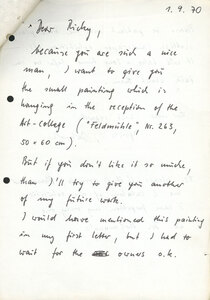 1. 9. 70
Dear Ricky,
because you are such a nice
man, I want to give you
the small painting which is
hanging in the reception of the
Art-College ("Feldmühle", Nr. 263,
50 x 60 cm).
But if you don't like it so much,
than I'll try to give you another
of my future work.
I would have mentioned this painting
in my first letter, but I had to
wait for the owners o.k.